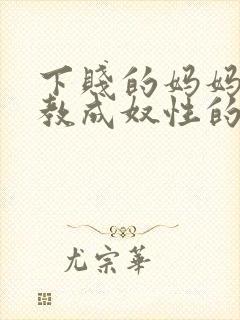 下賤的妈妈
教成奴性的
尤宗華